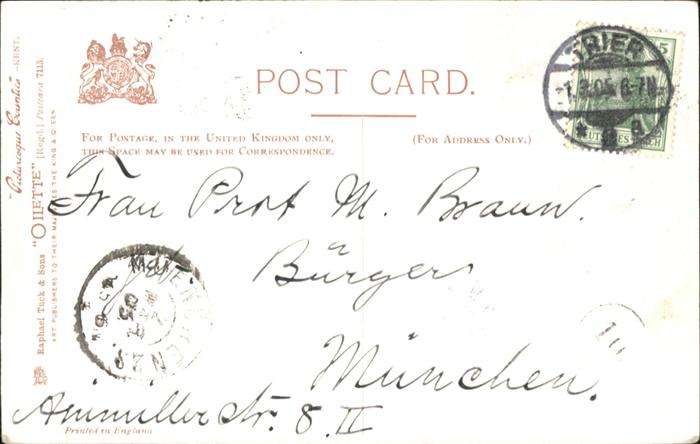 POST CARD.
FOR POSTAGE, IN THE UNITED KINGDOM ONLY,
THIS SPACE MAY BE USED FOR CORRESPONDENCE.
(FOR ADDRESS ONLY.)
TRIER
5
DEUTSCHES REICH
Frau Prof M. Braun.
Bürger
München.
Ainmillerstr. 8 II
Printed in England
"Picturesque Counties" -KENT.
Raphael Tuck & Sons "OILETTE" [Regd.] Postcard 7113.
ART PUBLISHERS TO THEIR MAJESTIES THE KING & QUEEN